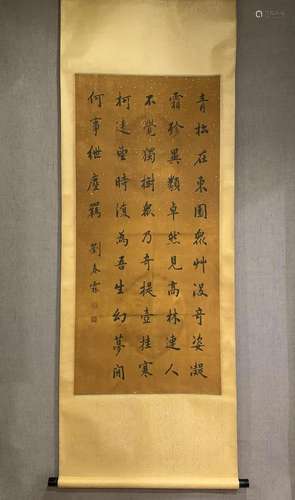 青松在東園眾艸没奇姿凝
霜殄異類卓然見高林連人
不覺獨樹眾乃奇提壺挂寒
柯遠望時復為吾生幻夢間
何事紲塵羈
劉春霖